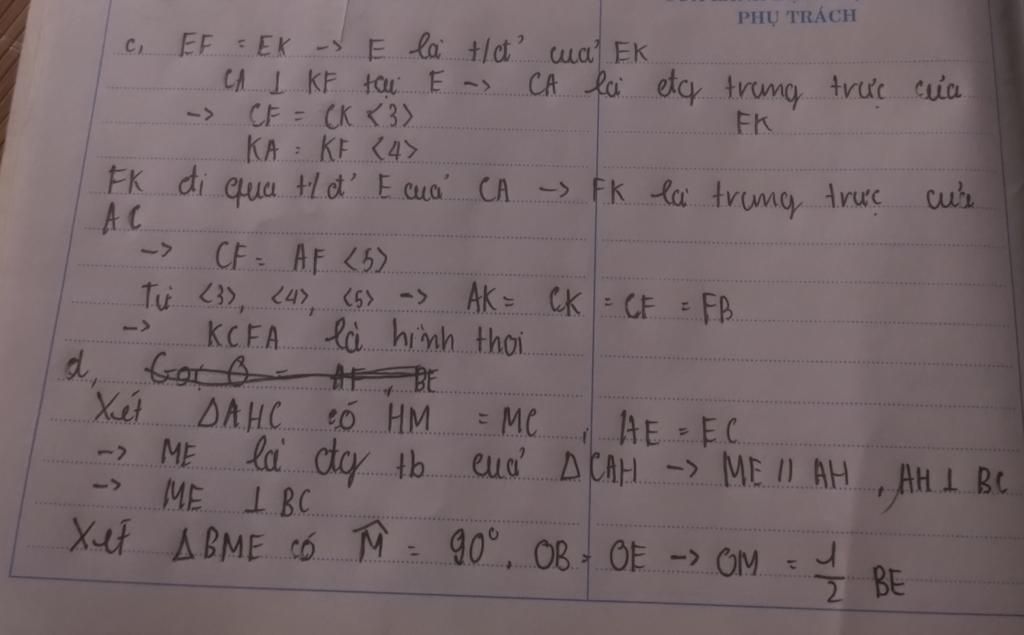 PHỤ TRÁCH
c, EF = EK -> E là t/đ' của EK
CA ⊥ KF tại E -> CA là đtg trung trực của
FK
-> CF = CK <3>
KA = KF <4>
FK đi qua t/đ' E của CA -> FK là trung trực của
AC
-> CF = AF <5>
Từ <3>, <4>, <5> -> AK = CK = CF = FB
-> KCFA là hình thoi
d,
Xét ΔAHC có HM = MC, AE = EC
-> ME là đtg tb của ΔCAH -> ME // AH, AH ⊥ BC
-> ME ⊥ BC
Xét ΔBME có M̂ = 90°, OB = OE -> OM = 1/2 BE